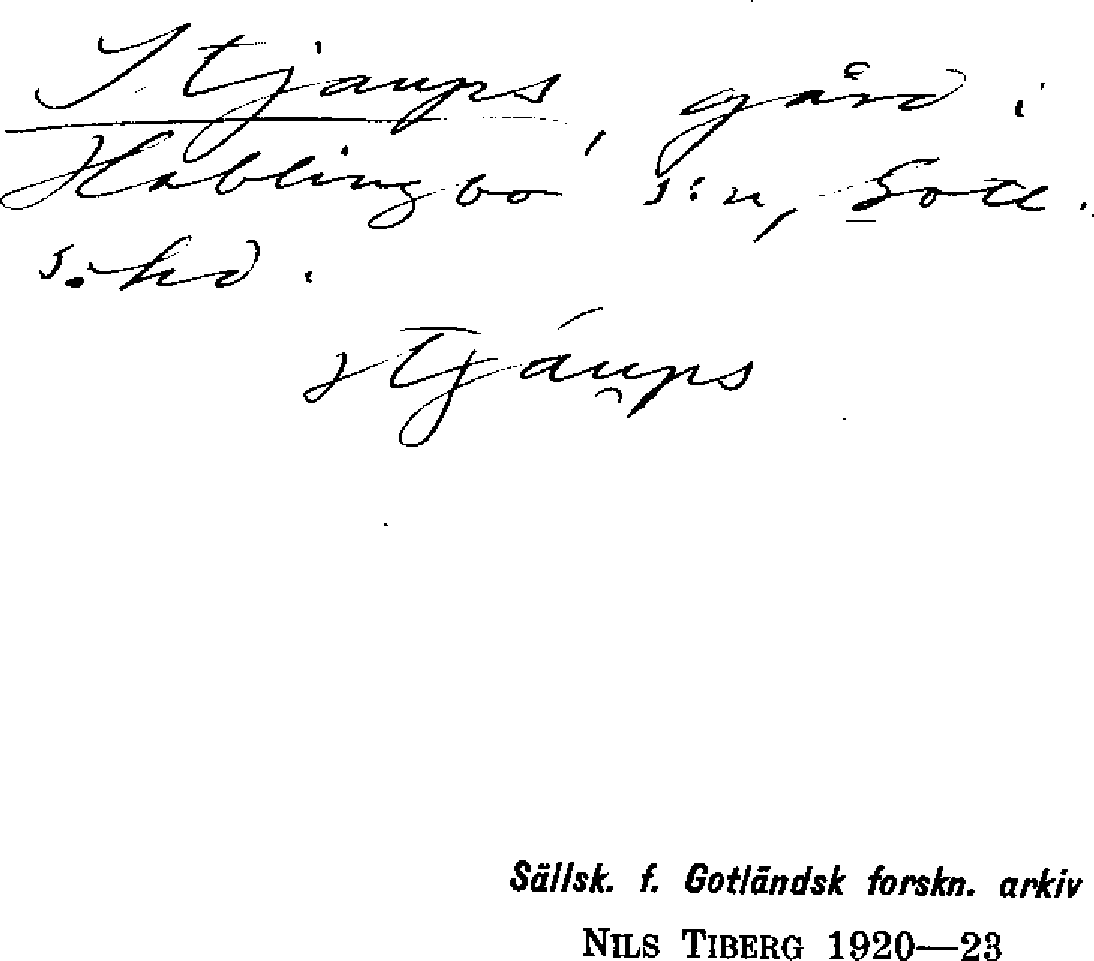 Stjaups, gård i
Hablingbo s:n, Gotl.
s. hd.
stjáu̯ps
Sällsk. f. Gotländsk forskn. arkiv
NILS TIBERG 1920—23